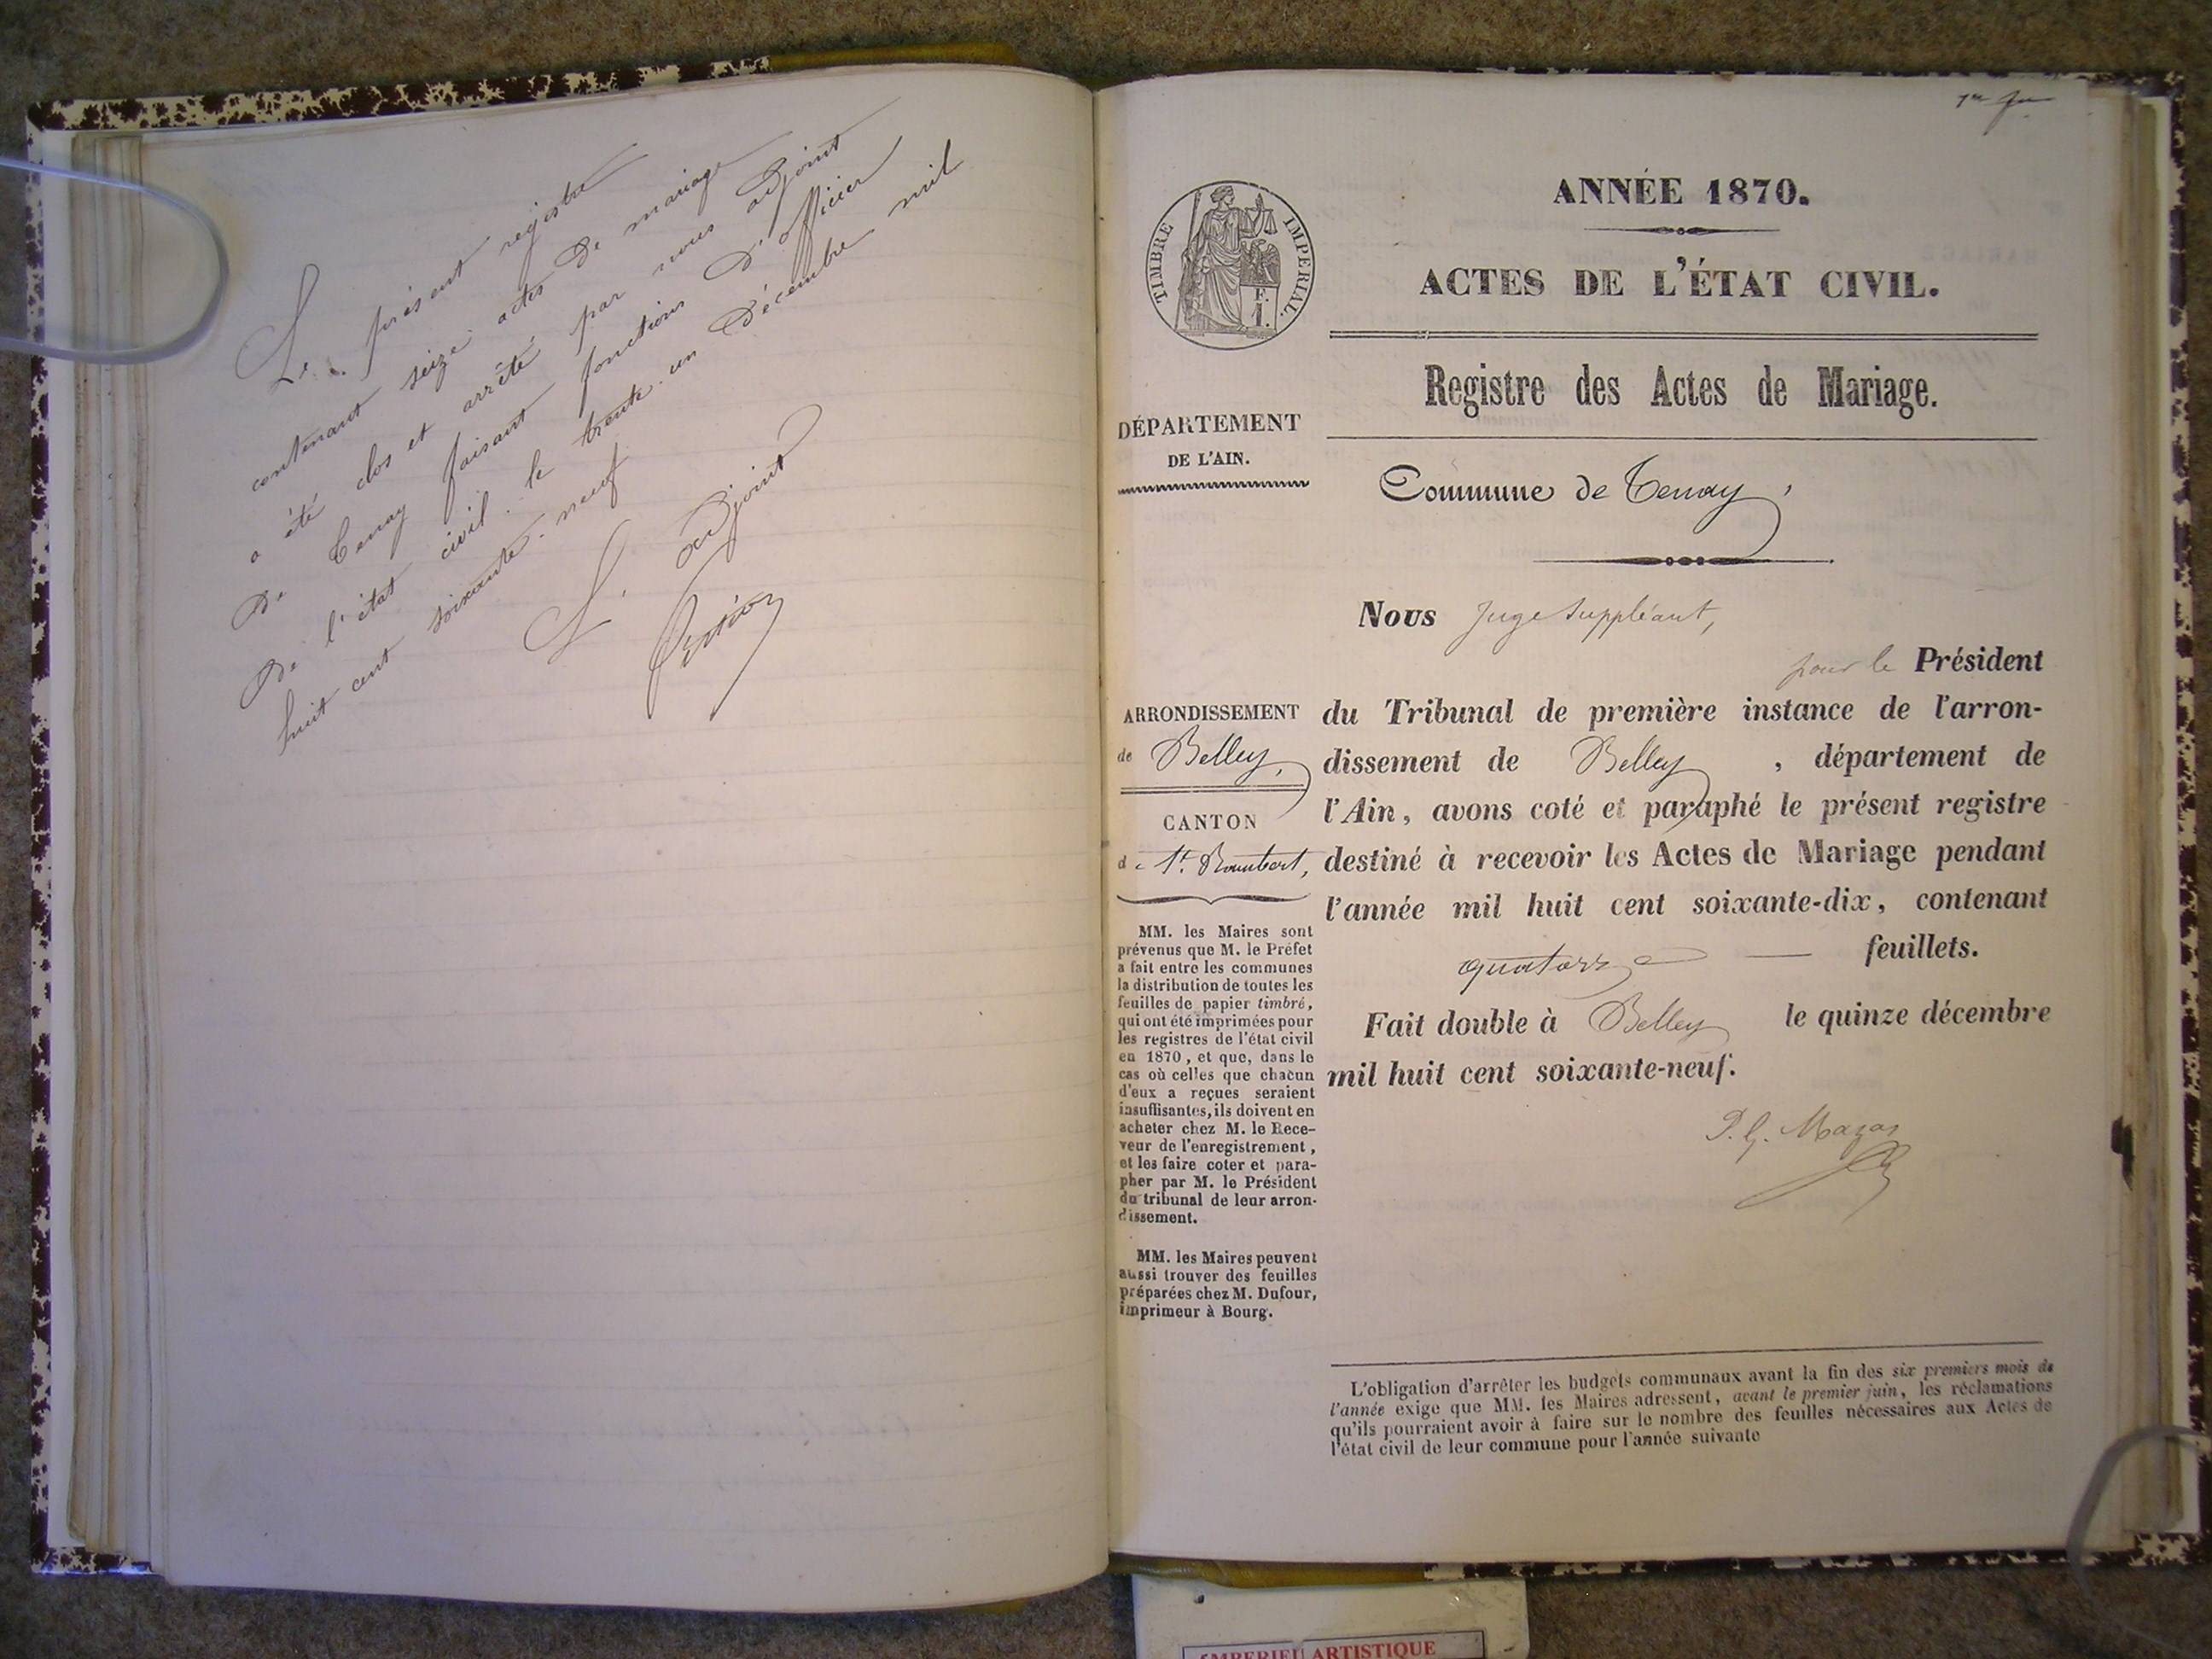 Le présent registre
contenant seize actes de mariage
a été clos et arrêté par nous adjoint
de Tenay faisant fonctions d'officier
de l'état civil le trente-un Décembre mil
huit cent soixante-neuf
L'adjoint
1er
ANNÉE 1870.
ACTES DE L'ÉTAT CIVIL.
TIMBRE IMPERIAL.
F.
1.
Registre des Actes de Mariage.
DÉPARTEMENT
DE L'AIN.
Commune de Tenay,
Nous Juge Suppléant,
pour le Président
du Tribunal de première instance de l'arron-
dissement de Belley, département de
l'Ain, avons coté et paraphé le présent registre
destiné à recevoir les Actes de Mariage pendant
l'année mil huit cent soixante-dix, contenant
quatorze — feuillets.
Fait double à Belley le quinze décembre
mil huit cent soixante-neuf.
P. G. Mazas
ARRONDISSEMENT
de Belley,
CANTON
de St. Rambert,
MM. les Maires sont
prévenus que M. le Préfet
a fait entre les communes
la distribution de toutes les
feuilles de papier timbré,
qui ont été imprimées pour
les registres de l'état civil
en 1870, et que, dans le
cas où celles que chacun
d'eux a reçues seraient
insuffisantes, ils doivent en
acheter chez M. le Rece-
veur de l'enregistrement,
et les faire coter et para-
pher par M. le Président
du tribunal de leur arron-
dissement.
MM. les Maires peuvent
aussi trouver des feuilles
préparées chez M. Dufour,
imprimeur à Bourg.
L'obligation d'arrêter les budgets communaux avant la fin des six premiers mois de
l'année exige que MM. les Maires adressent, avant le premier juin, les réclamations
qu'ils pourraient avoir à faire sur le nombre des feuilles nécessaires aux Actes de
l'état civil de leur commune pour l'année suivante
AMBERIEU ARTISTIQUE